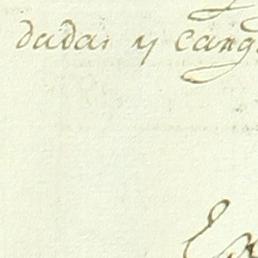 dadas y cang